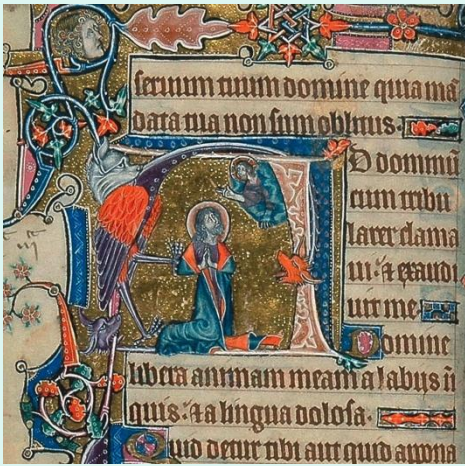 seruum tuum domine quia ma
data tua non sum oblitus.
AD dominū
cum tribu
larer clama
ui. & exaudi
uit me.
Domine
libera animam meam a labiis ini
quis. & a lingua dolosa.
Quid detur tibi aut quid appona